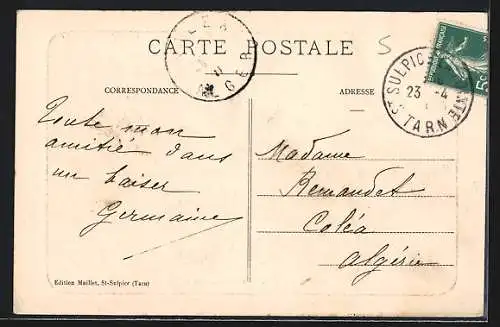 CARTE POSTALE
5
CORRESPONDANCE
ADRESSE
ALGER
ST SULPICE
23 -4
TARN
5c
Toute mon
amitié dans
un baiser
Germaine
Madame
Remaudet
Coléa
Algérie
Edition Maillet, St-Sulpice (Tarn)